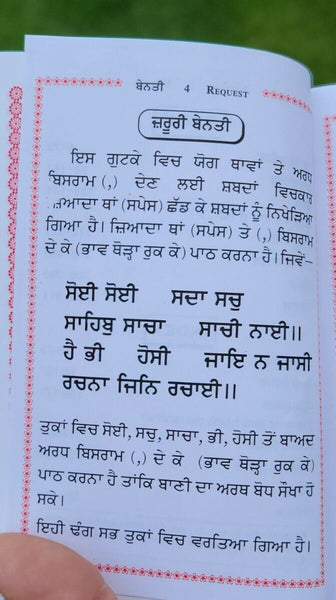 ਬੇਨਤੀ 4 REQUEST
ਜ਼ਰੂਰੀ ਬੇਨਤੀ
ਇਸ ਗੁਟਕੇ ਵਿਚ ਯੋਗ ਥਾਵਾਂ ਤੇ ਅਰਧ
ਬਿਸਰਾਮ (,) ਦੇਣ ਲਈ ਸ਼ਬਦਾਂ ਵਿਚਕਾਰ
ਜ਼ਿਆਦਾ ਥਾਂ (ਸਪੇਸ) ਛੱਡ ਕੇ ਸ਼ਬਦਾਂ ਨੂੰ ਨਿਖੇੜਿਆ
ਗਿਆ ਹੈ। ਜ਼ਿਆਦਾ ਥਾਂ (ਸਪੇਸ) ਤੇ (,) ਬਿਸਰਾਮ
ਦੇ ਕੇ (ਭਾਵ ਥੋੜ੍ਹਾ ਰੁਕ ਕੇ) ਪਾਠ ਕਰਨਾ ਹੈ। ਜਿਵੇਂ–
ਸੋਈ ਸੋਈ ਸਦਾ ਸਚੁ
ਸਾਹਿਬੁ ਸਾਚਾ ਸਾਚੀ ਨਾਈ॥
ਹੈ ਭੀ ਹੋਸੀ ਜਾਇ ਨ ਜਾਸੀ
ਰਚਨਾ ਜਿਨਿ ਰਚਾਈ॥
ਤੁਕਾਂ ਵਿਚ ਸੋਈ, ਸਚੁ, ਸਾਚਾ, ਭੀ, ਹੋਸੀ ਤੋਂ ਬਾਅਦ
ਅਰਧ ਬਿਸਰਾਮ (,) ਦੇ ਕੇ (ਭਾਵ ਥੋੜ੍ਹਾ ਰੁਕ ਕੇ)
ਪਾਠ ਕਰਨਾ ਹੈ ਤਾਂਕਿ ਬਾਣੀ ਦਾ ਅਰਥ ਬੋਧ ਸੌਖਾ ਹੋ
ਸਕੇ।
ਇਹੀ ਢੰਗ ਸਭ ਤੁਕਾਂ ਵਿਚ ਵਰਤਿਆ ਗਿਆ ਹੈ।